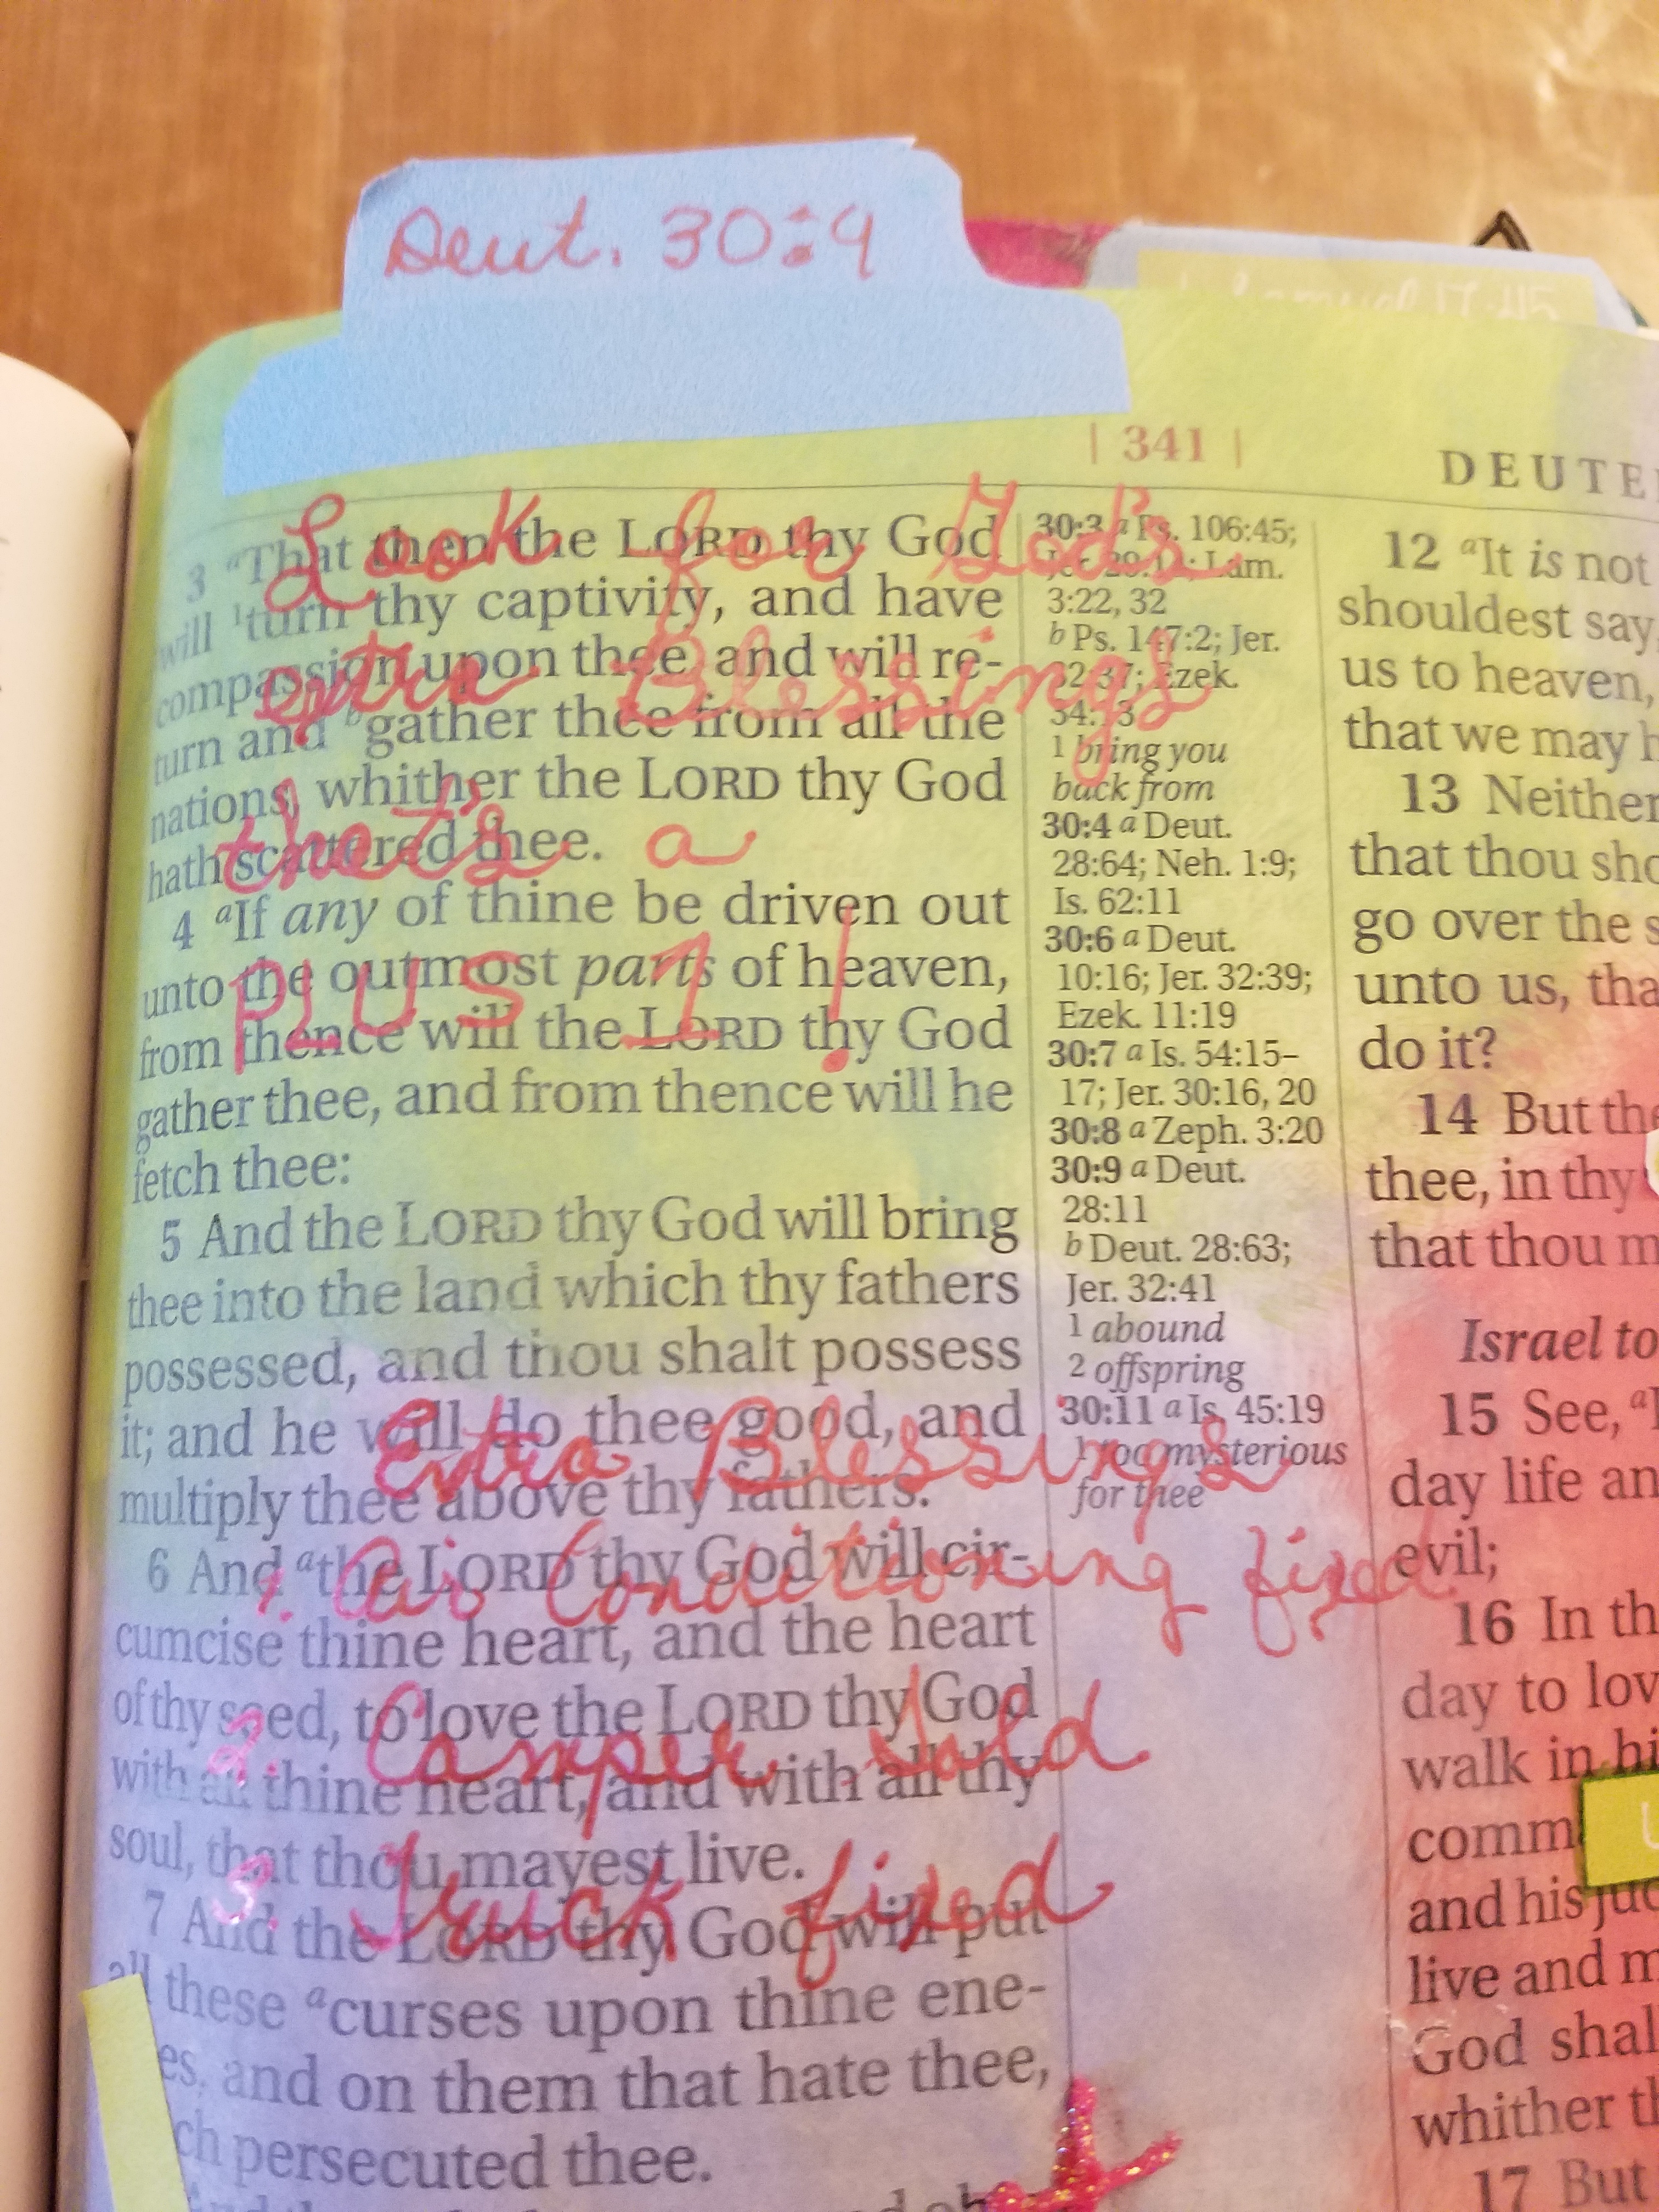 Deut. 30:9
muel 17:45
| 341 |
DEUTE
Look for God's
extra Blessings
that's a
PLUS 1!
Extra Blessings
1. Air Conditioning fixed
2. Camper sold
3. Truck fixed
3 aThat then the LORD thy God
will 1turn thy captivity, and have
compassion upon thee, and will re-
turn and bgather thee from all the
nations, whither the LORD thy God
hath scattered thee.
4 aIf any of thine be driven out
unto the outmost parts of heaven,
from thence will the LORD thy God
gather thee, and from thence will he
fetch thee:
5 And the LORD thy God will bring
thee into the land which thy fathers
possessed, and thou shalt possess
it; and he will do thee good, and
multiply thee above thy fathers.
6 And athe LORD thy God will cir-
cumcise thine heart, and the heart
of thy seed, to love the LORD thy God
with all thine heart, and with all thy
soul, that thou mayest live.
7 And the LORD thy God will put
all these acurses upon thine ene-
es, and on them that hate thee,
ch persecuted thee.
30:3 a Ps. 106:45;
Lam.
3:22, 32
b Ps. 147:2; Jer.
32:37; Ezek.
34:13
1 bring you
back from
30:4 a Deut.
28:64; Neh. 1:9;
Is. 62:11
30:6 a Deut.
10:16; Jer. 32:39;
Ezek. 11:19
30:7 a Is. 54:15–
17; Jer. 30:16, 20
30:8 a Zeph. 3:20
30:9 a Deut.
28:11
b Deut. 28:63;
Jer. 32:41
1 abound
2 offspring
30:11 a Is. 45:19
1 too mysterious
for thee
12 aIt is not
shouldest say,
us to heaven,
that we may h
13 Neither
that thou sho
go over the s
unto us, tha
do it?
14 But the
thee, in thy
that thou m
Israel to
15 See, a
day life an
evil;
16 In th
day to lov
walk in hi
comm
and his jud
live and m
God shal
whither th
17 But